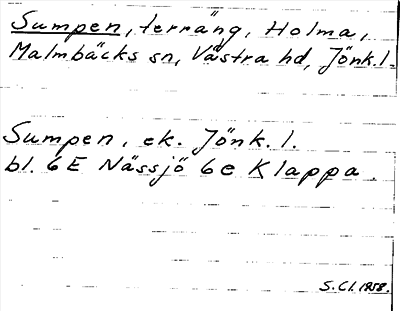 Sumpen, terräng, Holma,
Malmbäcks sn, Västra hd, Jönk.l.
Sumpen, ek. Jönk. l.
bl. 6E Nässjö 6e Klappa.
S.Cl. 1958.